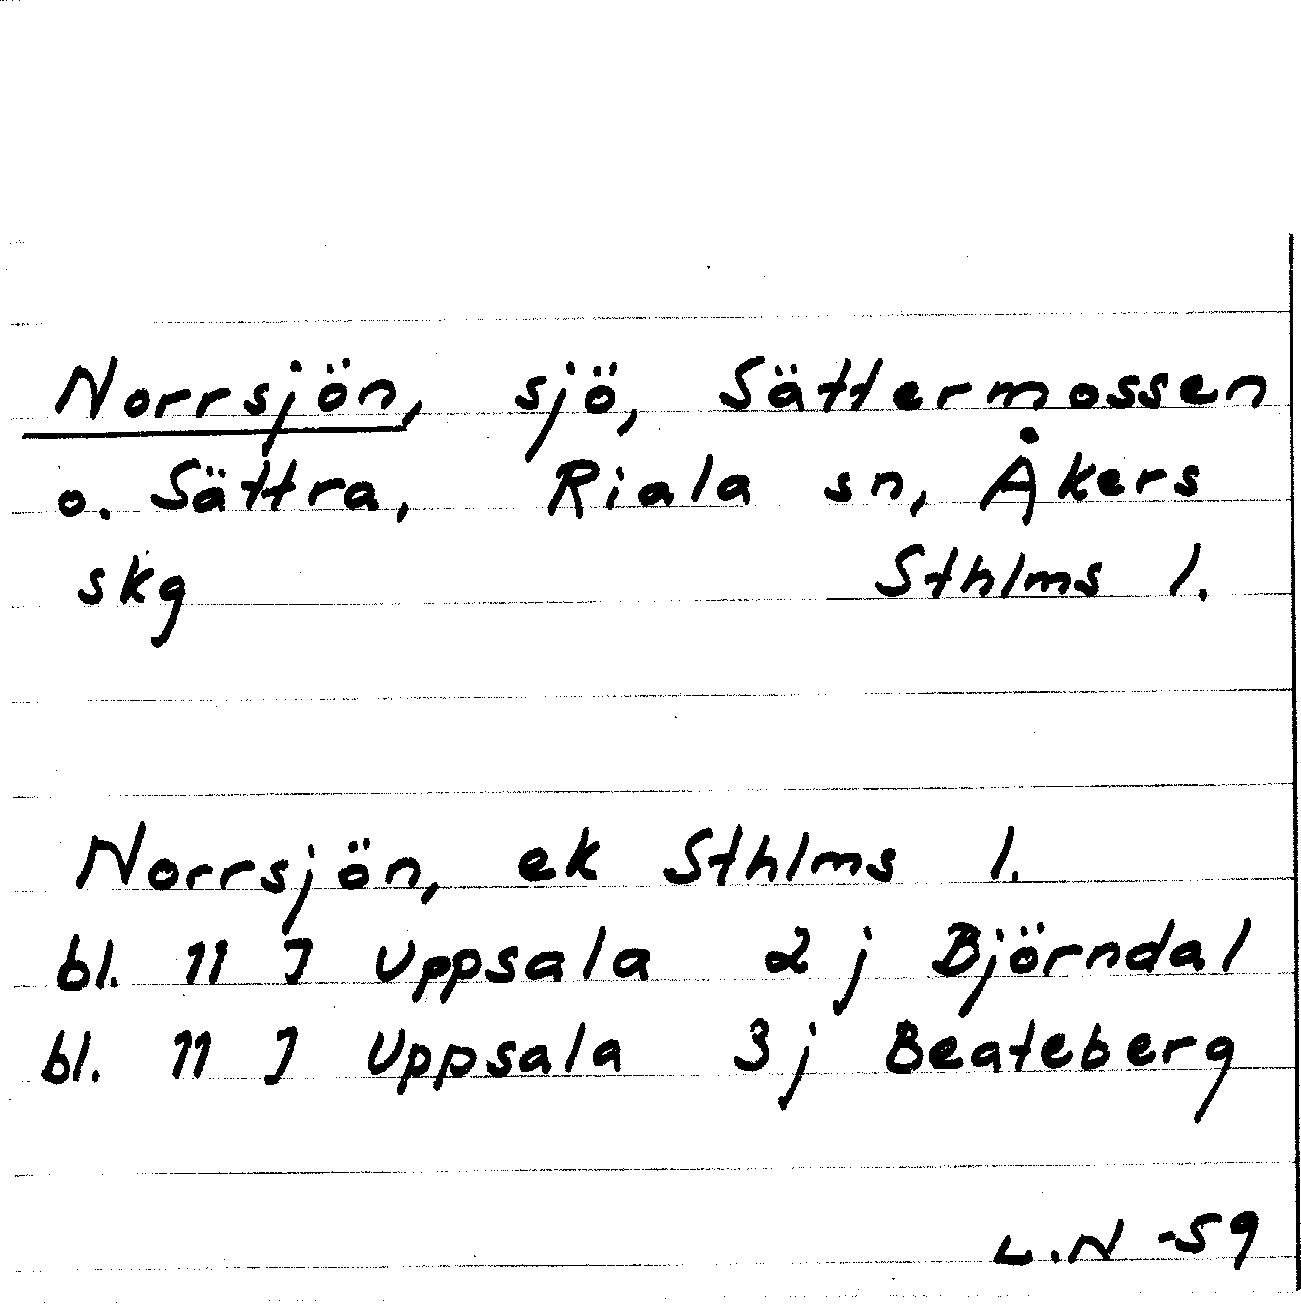 Norrsjön, sjö, Sättermossen
o. Sättra, Riala sn, Åkers
skg Sthlms l.
Norrsjön, ek Sthlms l.
bl. 11 J Uppsala 2 j Björndal
bl. 11 J Uppsala 3 j Beateberg
L.N -59